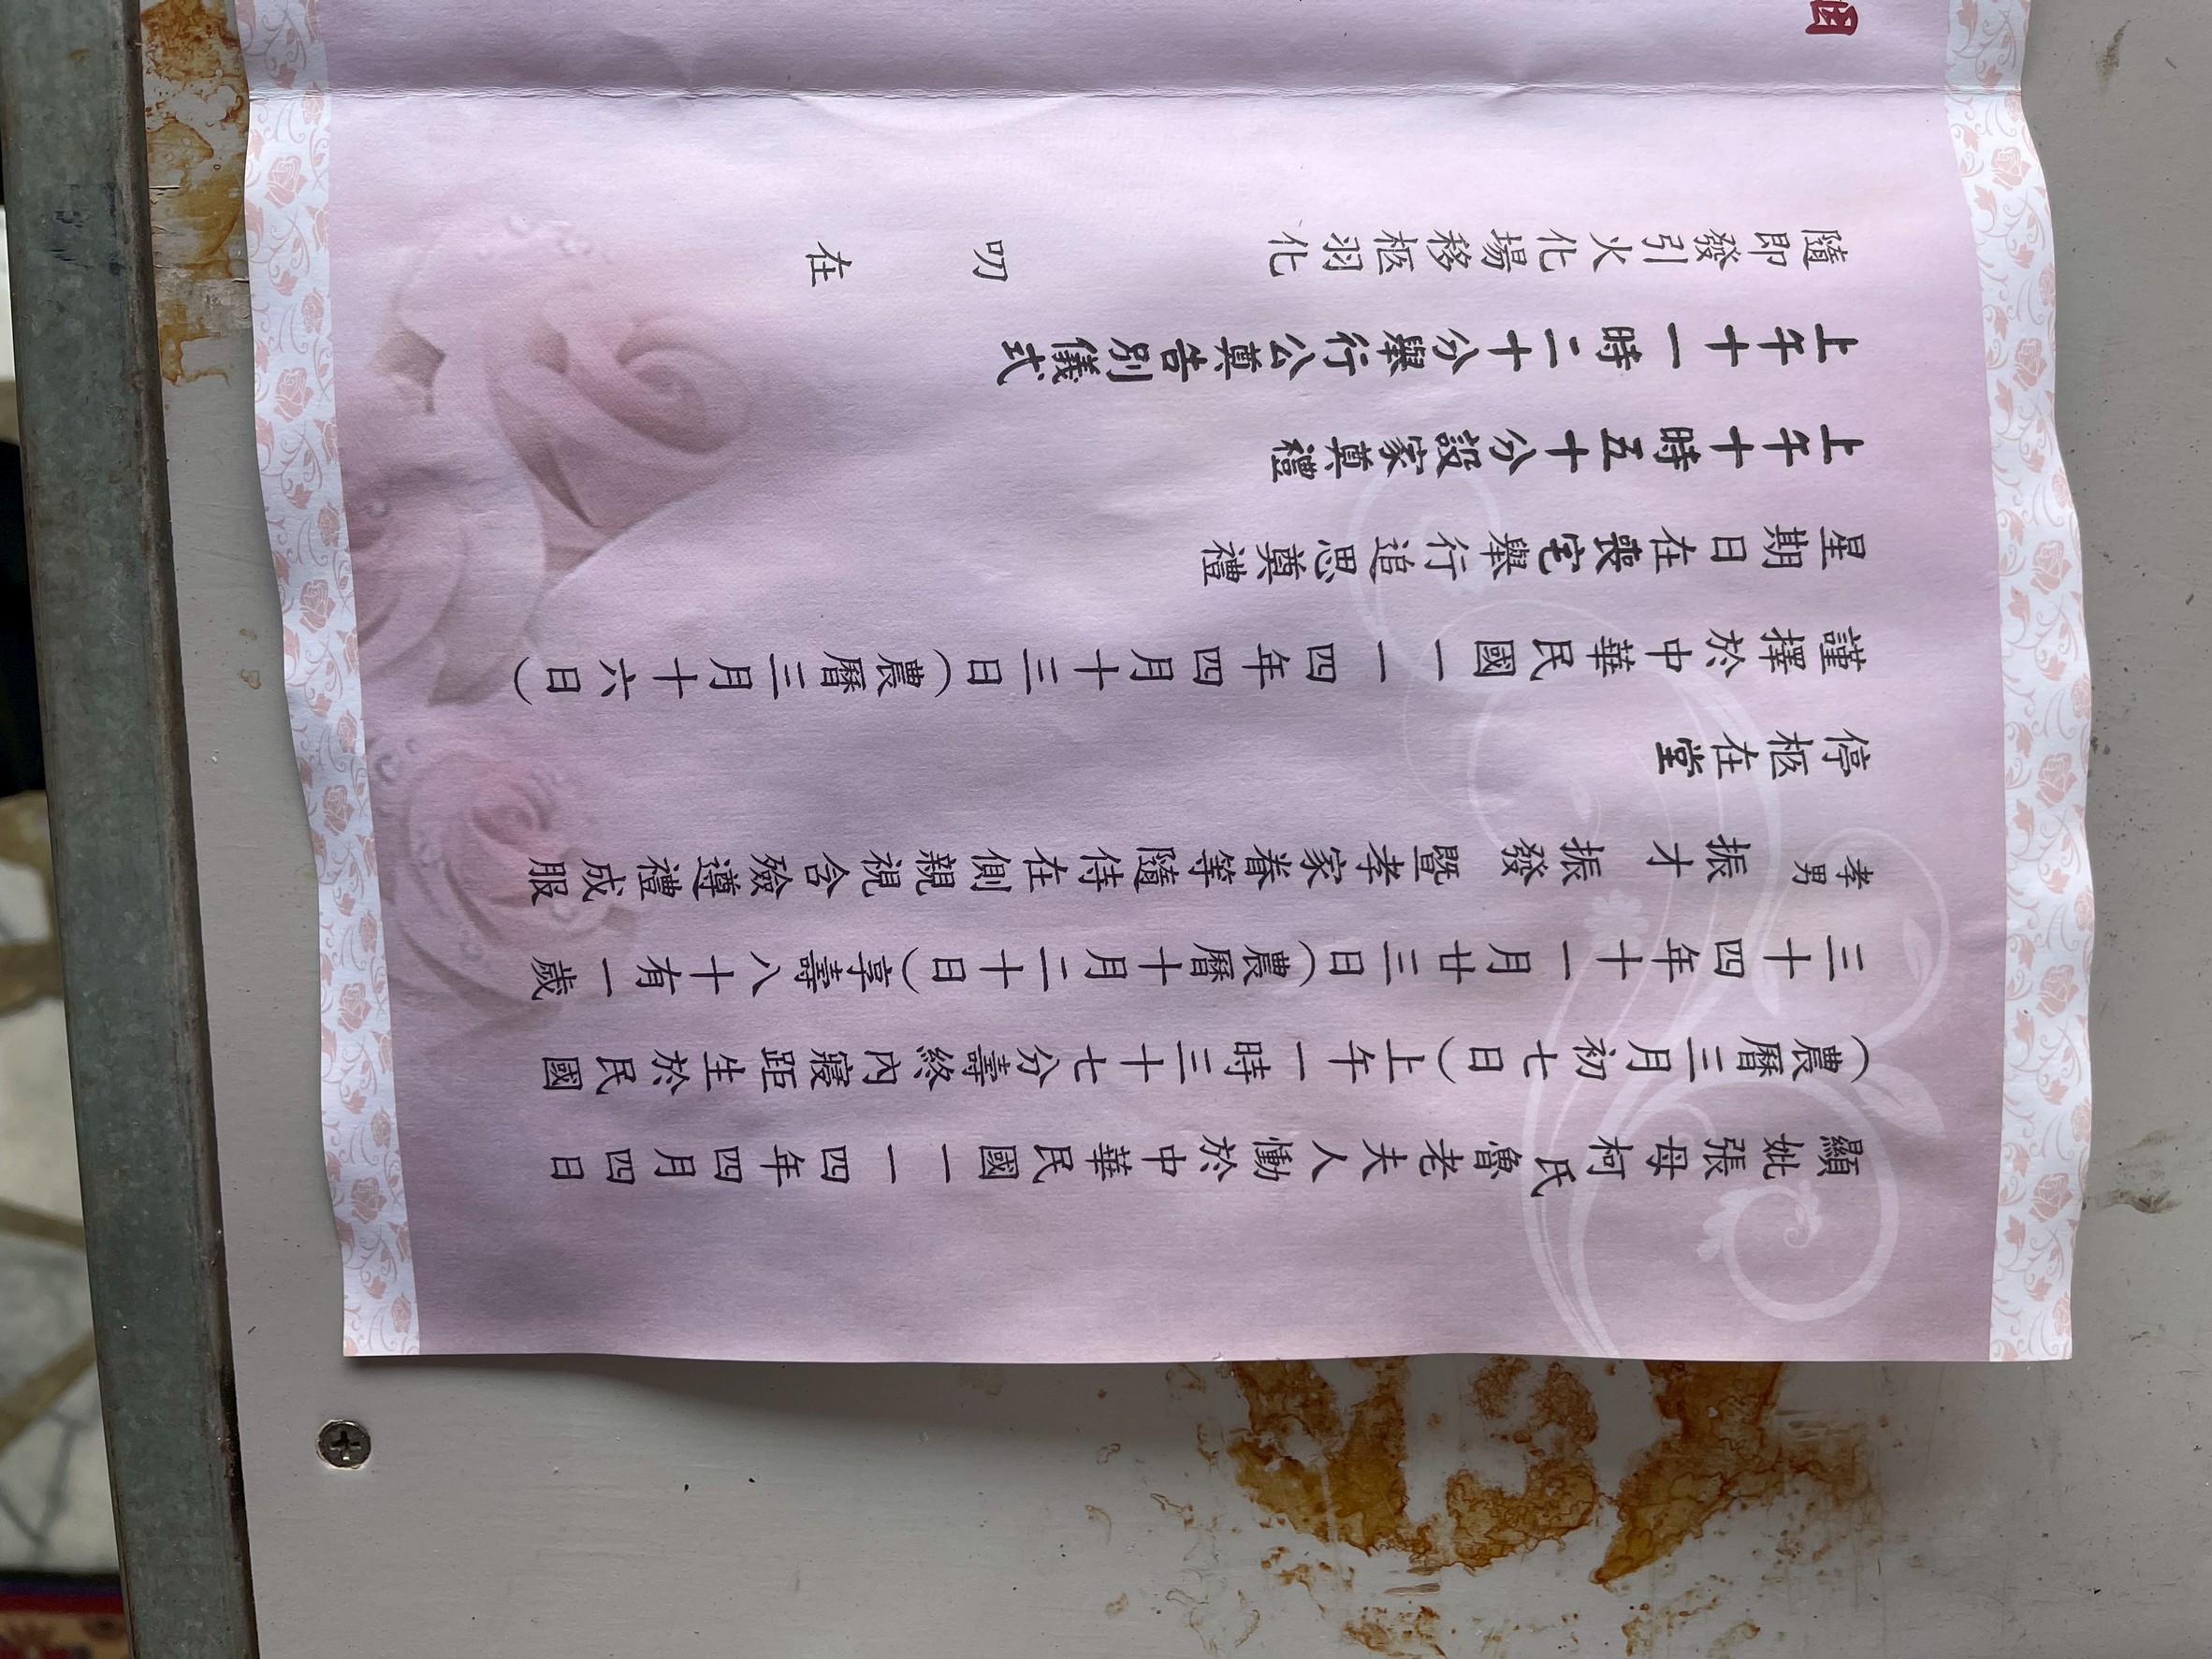 顯妣張母柯氏魯老夫人慟於中華民國一一四年四月四日
(農曆三月初七日)上午一時三十七分壽終內寢距生於民國
三十四年十一月廿三日(農曆十月二十日)享壽八十有一歲
孝男 振才 振發 暨孝家眷等隨侍在側親視含殮遵禮成服
停柩在堂
謹擇於中華民國一一四年四月十三日(農曆三月十六日)
星期日在喪宅舉行追思奠禮
上午十時五十分設家奠禮
上午十一時二十分舉行公奠告別儀式
隨即發引火化場移柩羽化 叨 在